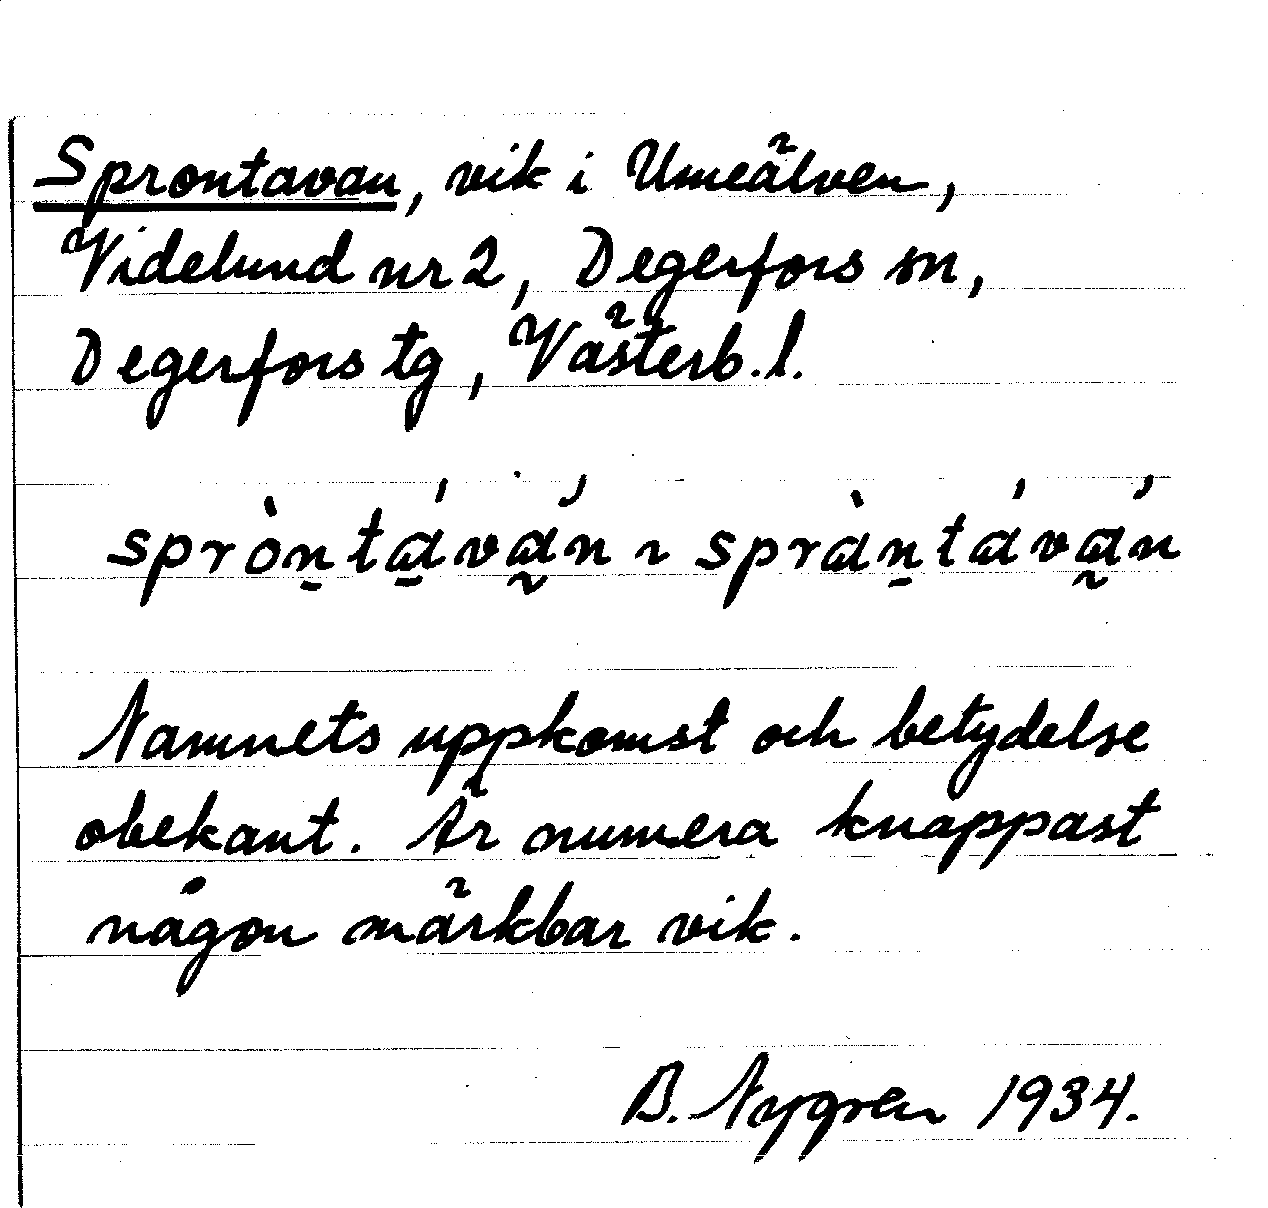 Sprontavan, vik i Umeälven,
Videlund nr 2, Degerfors sn,
Degerfors tg, Västerb. l.
spròn̠tá̠vá̰n ~ spràn̠tává̰n
Namnets uppkomst och betydelse
obekant. Är numera knappast
någon märkbar vik.
B. Nygren 1934.